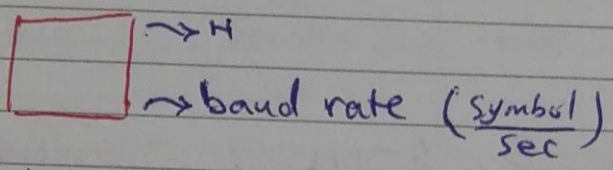 ~> H
~> baud rate (symbol/sec)